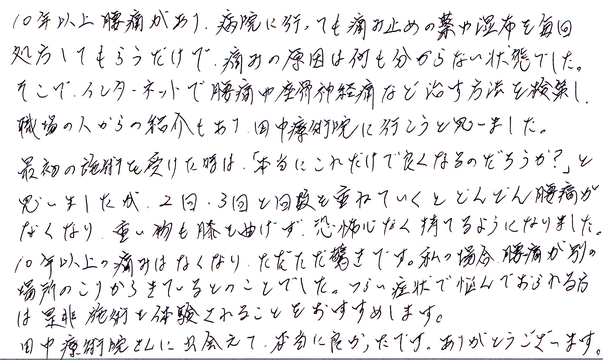 10年以上腰痛があり、病院に行っても痛み止めの薬や湿布を毎回
処方してもらうだけで、痛みの原因は何も分からない状態でした。
そこで、インターネットで腰痛や座骨神経痛など治す方法を検索し、
職場の人からの紹介もあり、田中療術院に行こうと思いました。
最初の施術を受けた時は、「本当にこれだけで良くなるのだろうか?」と
思いましたが、2回・3回と回数を重ねていくとどんどん腰痛が
なくなり、重い物も膝を曲げず、恐怖心なく持てるようになりました。
10年以上の痛みはなくなり、ただただ驚きです。私の場合、腰痛が別の
場所のこりからきているとのことでした。つらい症状で悩んでおられる方
は是非施術を体験されることをおすすめします。
田中療術院さんに出会えて、本当に良かったです。ありがとうございます。